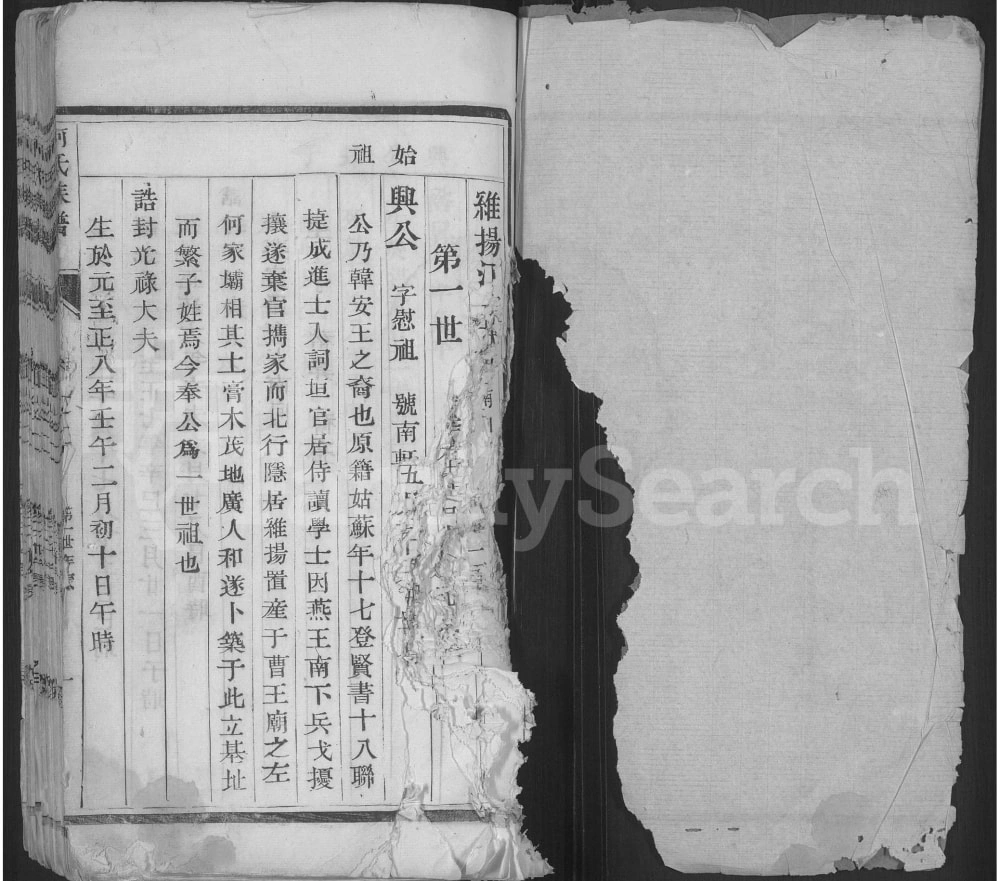 維揚江
第一世
始祖
興公 字慰祖 號南軒五
公乃韓安王之裔也原籍姑蘇年十七登賢書十八聯
㨗成進士入詞垣官居侍讀學士因燕王南下兵戈擾
攘遂棄官擕家而北行隱居維揚置産于曹王廟之左
何家壩相其土膏木茂地廣人和遂卜築于此立基址
而繁子姓焉今奉公爲一世祖也
誥封光祿大夫
生於元至正八年壬午二月初十日午時
何氏族譜
第一世
一
FamilySearch